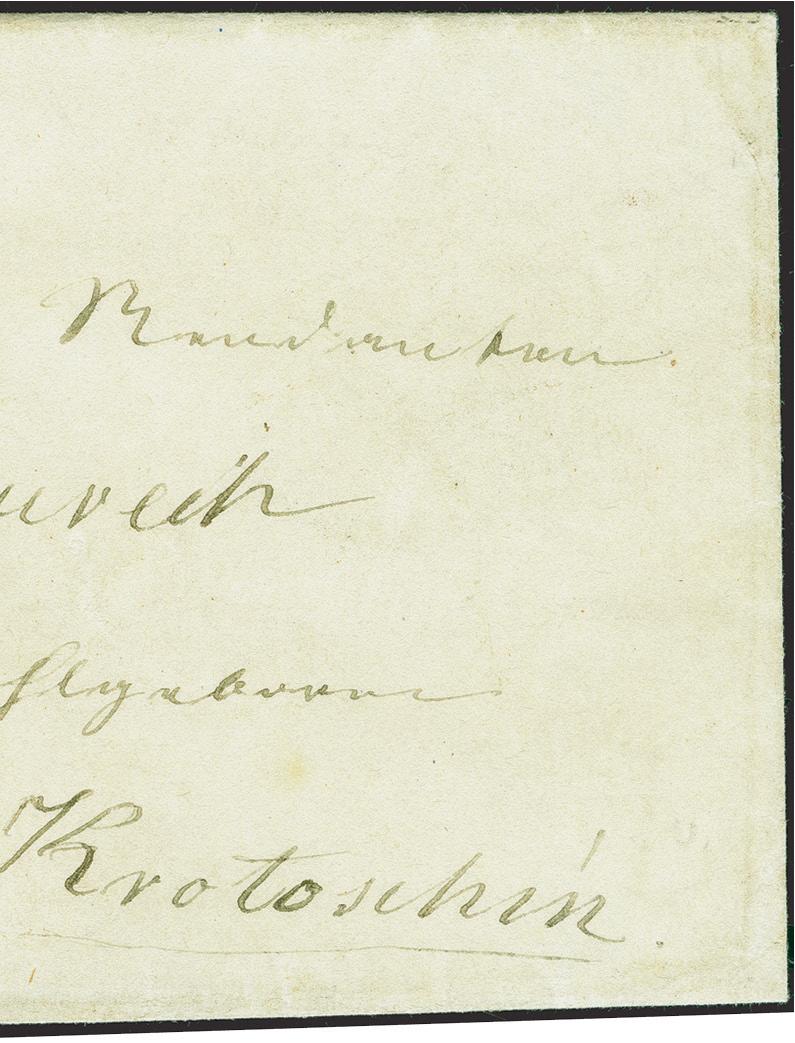 Rendanten
hlgeboren
Krotoschin.